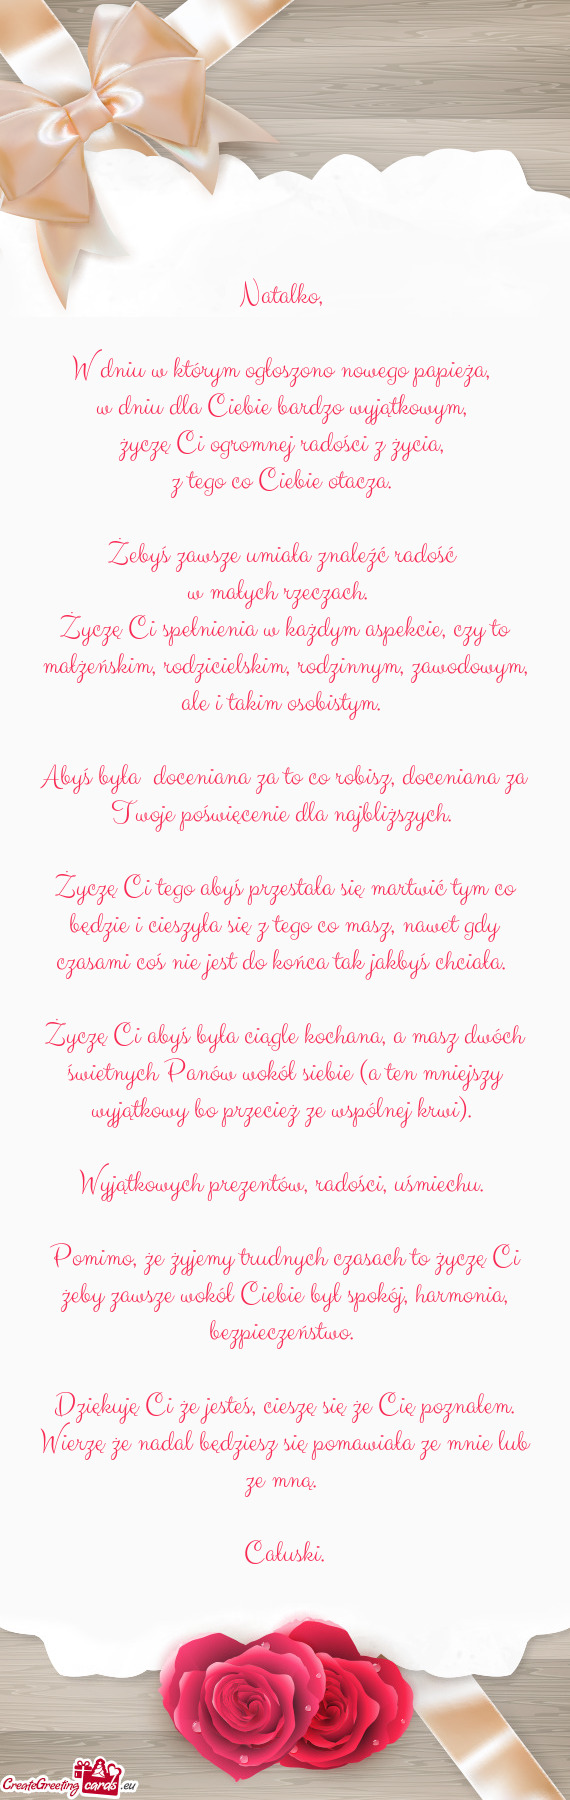 Natalko,
W dniu w którym ogłoszono nowego papieża,
w dniu dla Ciebie bardzo wyjątkowym,
życzę Ci ogromnej radości z życia,
z tego co Ciebie otacza.
Żebyś zawsze umiała znaleźć radość
w małych rzeczach.
Życzę Ci spełnienia w każdym aspekcie, czy to
małżeńskim, rodzicielskim, rodzinnym, zawodowym,
ale i takim osobistym.
Abyś była doceniana za to co robisz, doceniana za
Twoje poświęcenie dla najbliższych.
Życzę Ci tego abyś przestała się martwić tym co
będzie i cieszyła się z tego co masz, nawet gdy
czasami coś nie jest do końca tak jakbyś chciała.
Życzę Ci abyś była ciągle kochana, a masz dwóch
świetnych Panów wokół siebie (a ten mniejszy
wyjątkowy bo przecież ze wspólnej krwi).
Wyjątkowych prezentów, radości, uśmiechu.
Pomimo, że żyjemy trudnych czasach to życzę Ci
żeby zawsze wokół Ciebie był spokój, harmonia,
bezpieczeństwo.
Dziękuję Ci że jesteś, cieszę się że Cię poznałem.
Wierzę że nadal będziesz się pomawiała ze mnie lub
ze mną.
Całuski.
CreateGreeting cards .eu